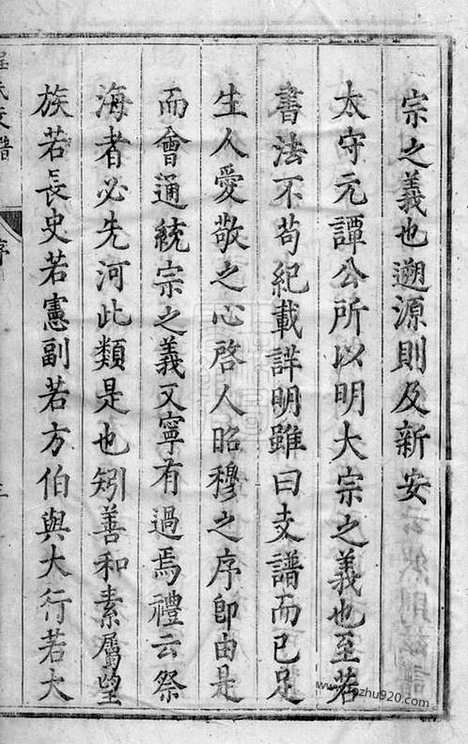 宗之義也遡源則及新安
太守元譚公所以明大宗之義也至若
書法不苟紀載詳明雖曰支譜而已足
生人愛敬之心啓人昭穆之序即由是
而會通統宗之義又寧有過焉禮云祭
海者必先河此類是也矧善和素屬望
族若長史若憲副若方伯與大行若大
程氏支譜
序
www.jiapu920.com